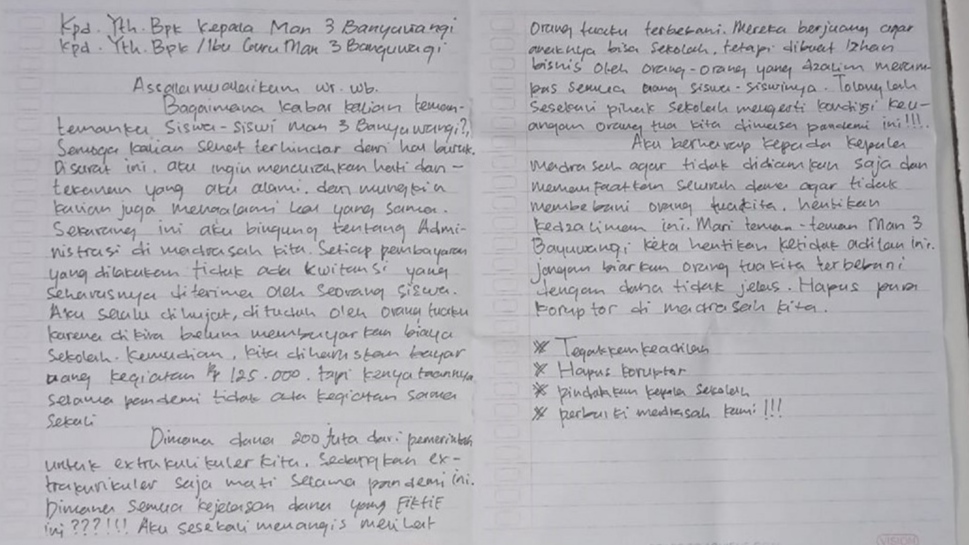 Kpd. Yth. Bpk Kepala Man 3 Banyuwangi
Kpd. Yth. Bpk / Ibu Guru Man 3 Banyuwagi
Assalamualaikum wr. wb.
Bagaimana kabar kalian teman-
temanku, Siswa-siswi Man 3 Banyuwangi?,
Semoga kalian sehat terhindar dari hal buruk.
Disurat ini, aku ingin mencurahkan hati dan
tekanan yang aku alami, dan mungkin
kalian juga mengalami hal yang sama.
Sekarang ini aku bingung tentang Admi-
nistrasi di madrasah kita. Setiap pembayaran
yang dilakukan tidak ada kwitansi yang
seharusnya diterima oleh seorang siswa.
Aku selalu dihujat, dituduh oleh orang tuaku
karena dikira belum membayarkan biaya
sekolah. Kemudian, kita diharuskan bayar
uang kegiatan Rp 125.000. tapi kenyataannya
selama pandemi tidak ada kegiatan sama
sekali
Dimana dana 200 juta dari pemerintah
untuk extrakulikuler kita. Sedangkan ex-
trakurikuler saja mati selama pandemi ini.
Dimana semua kejelasan dana yang FIKTIF
ini???!!! Aku sesekali menangis melihat
orang tuaku terbebani. Mereka berjuang agar
anaknya bisa sekolah, tetapi dibuat lahan
bisnis oleh orang-orang yang dzalim meram-
pas semua uang siswa-siswinya. Tolonglah
sesekali pihak sekolah mengerti kondisi keu-
angan orang tua kita dimasa pandemi ini!!!.
Aku berharap kepada kepala
madrasah agar tidak didiamkan saja dan
memanfaatkan seluruh dana agar tidak
membebani orang tua kita. hentikan
kedzaliman ini. Mari teman-teman Man 3
Bayuwangi kita hentikan ketidak adilan ini.
jangan biarkan orang tua kita terbebani
dengan dana tidak jelas. Hapus para
koruptor di madrasah kita.
※ Tegakkan keadilan
※ Hapus koruptor
※ pindahkan kepala sekolah
※ perbaiki madrasah kami!!!
VISION